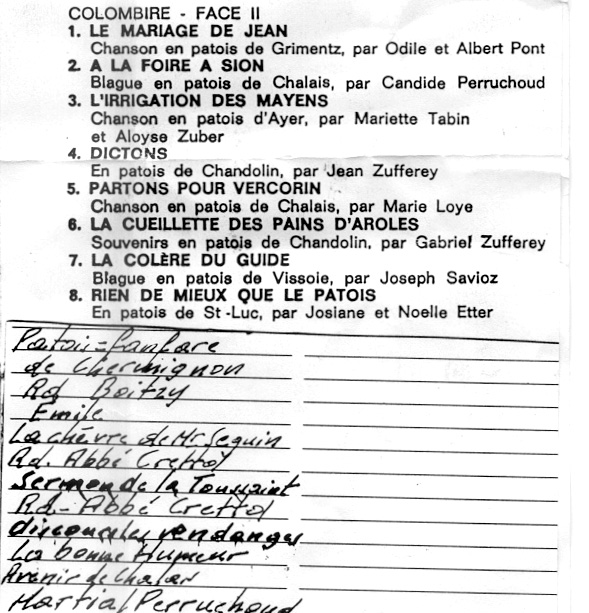 COLOMBIRE - FACE II
1. LE MARIAGE DE JEAN
Chanson en patois de Grimentz, par Odile et Albert Pont
2. A LA FOIRE A SION
Blague en patois de Chalais, par Candide Perruchoud
3. L'IRRIGATION DES MAYENS
Chanson en patois d'Ayer, par Mariette Tabin
et Aloyse Zuber
4. DICTONS
En patois de Chandolin, par Jean Zufferey
5. PARTONS POUR VERCORIN
Chanson en patois de Chalais, par Marie Loye
6. LA CUEILLETTE DES PAINS D'AROLES
Souvenirs en patois de Chandolin, par Gabriel Zufferey
7. LA COLÈRE DU GUIDE
Blague en patois de Vissoie, par Joseph Savioz
8. RIEN DE MIEUX QUE LE PATOIS
En patois de St-Luc, par Josiane et Noelle Etter
Patois-fanfare
de Chermignon
Rd Boitzy
Emile
La chèvre de Mr Seguin
Rd. Abbé Crettol
Sermon de la Toussaint
Rd-Abbé Crettol
vendanges
La bonne Humeur
Avenir de Chalais
Martial Perruchoud